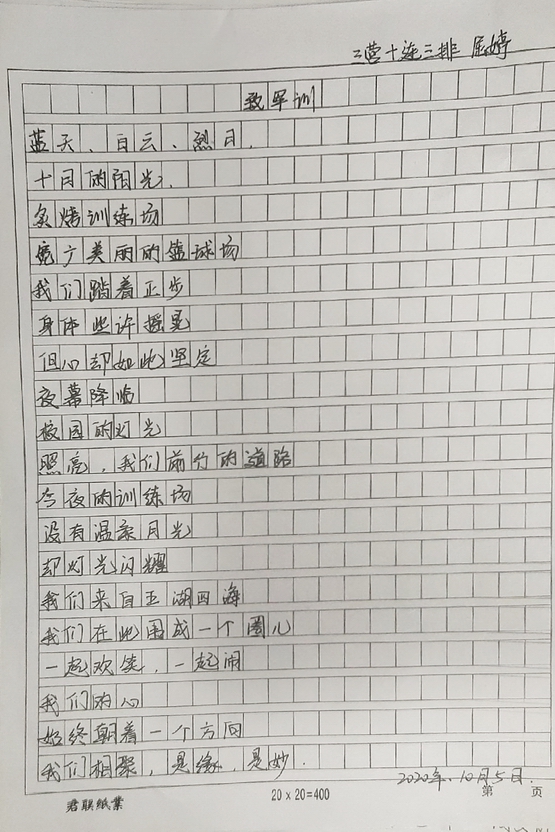 三营十连三排 屈婷
致军训
蓝天、白云、烈日.
十月的阳光.
炙烤训练场
宽广美丽的篮球场
我们踏着正步
身体些许摇晃
但心却如此坚定
夜幕降临
校园的灯光
照亮,我们前行的道路
今夜的训练场
没有温柔月光
却灯光闪耀
我们来自五湖四海
我们在此围成一个圈儿
一起欢笑,一起闹
我们的心
始终朝着一个方向
我们相聚,是缘,是妙.
2020年.10月5日.
君联纸业
20×20=400
第 页